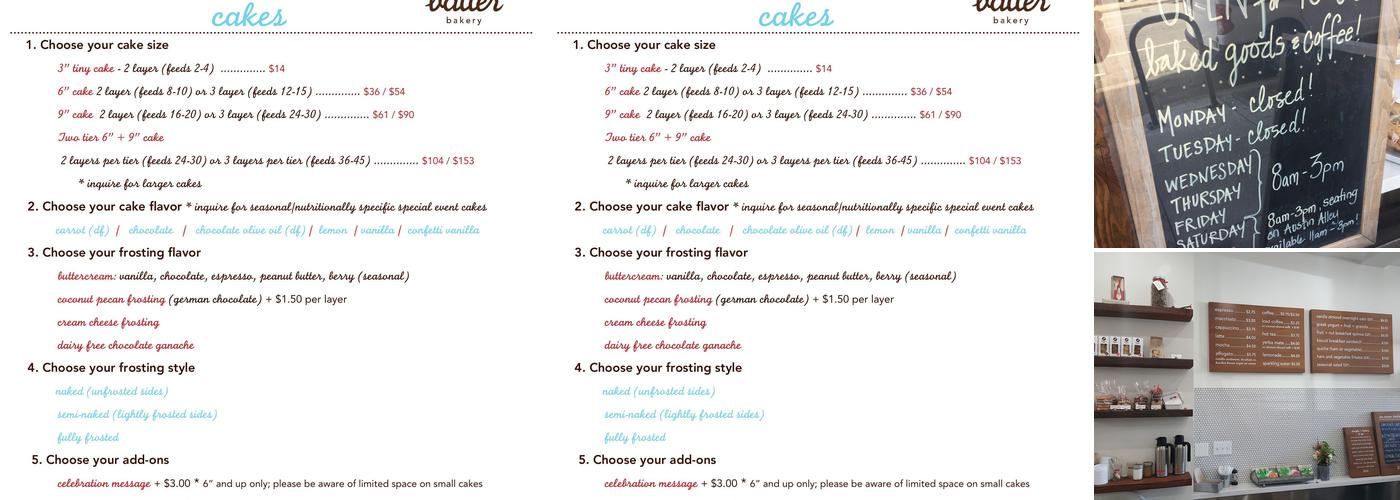 cakes
batter
bakery
1. Choose your cake size
3" tiny cake - 2 layer (feeds 2-4) .............. $14
6" cake 2 layer (feeds 8-10) or 3 layer (feeds 12-15) .............. $36 / $54
9" cake 2 layer (feeds 16-20) or 3 layer (feeds 24-30) .............. $61 / $90
Two tier 6" + 9" cake
2 layers per tier (feeds 24-30) or 3 layers per tier (feeds 36-45) .............. $104 / $153
* inquire for larger cakes
2. Choose your cake flavor * inquire for seasonal/nutritionally specific special event cakes
carrot (df) | chocolate | chocolate olive oil (df) | lemon | vanilla | confetti vanilla
3. Choose your frosting flavor
buttercream: vanilla, chocolate, espresso, peanut butter, berry (seasonal)
coconut pecan frosting (german chocolate) + $1.50 per layer
cream cheese frosting
dairy free chocolate ganache
4. Choose your frosting style
naked (unfrosted sides)
semi-naked (lightly frosted sides)
fully frosted
5. Choose your add-ons
celebration message + $3.00 * 6" and up only; please be aware of limited space on small cakes
cakes
batter
bakery
1. Choose your cake size
3" tiny cake - 2 layer (feeds 2-4) .............. $14
6" cake 2 layer (feeds 8-10) or 3 layer (feeds 12-15) .............. $36 / $54
9" cake 2 layer (feeds 16-20) or 3 layer (feeds 24-30) .............. $61 / $90
Two tier 6" + 9" cake
2 layers per tier (feeds 24-30) or 3 layers per tier (feeds 36-45) .............. $104 / $153
* inquire for larger cakes
2. Choose your cake flavor * inquire for seasonal/nutritionally specific special event cakes
carrot (df) | chocolate | chocolate olive oil (df) | lemon | vanilla | confetti vanilla
3. Choose your frosting flavor
buttercream: vanilla, chocolate, espresso, peanut butter, berry (seasonal)
coconut pecan frosting (german chocolate) + $1.50 per layer
cream cheese frosting
dairy free chocolate ganache
4. Choose your frosting style
naked (unfrosted sides)
semi-naked (lightly frosted sides)
fully frosted
5. Choose your add-ons
celebration message + $3.00 * 6" and up only; please be aware of limited space on small cakes
baked goods & coffee!
MONDAY - closed!
TUESDAY - closed!
WEDNESDAY
THURSDAY
8am-3pm
FRIDAY
SATURDAY
8am-3pm, seating
on Austin Alley
available 11am-3pm!
espresso
macchiato
cappuccino
latte
mocha
affogato
coffee
iced coffee
hot tea
yerba mate
lemonade
sparkling water